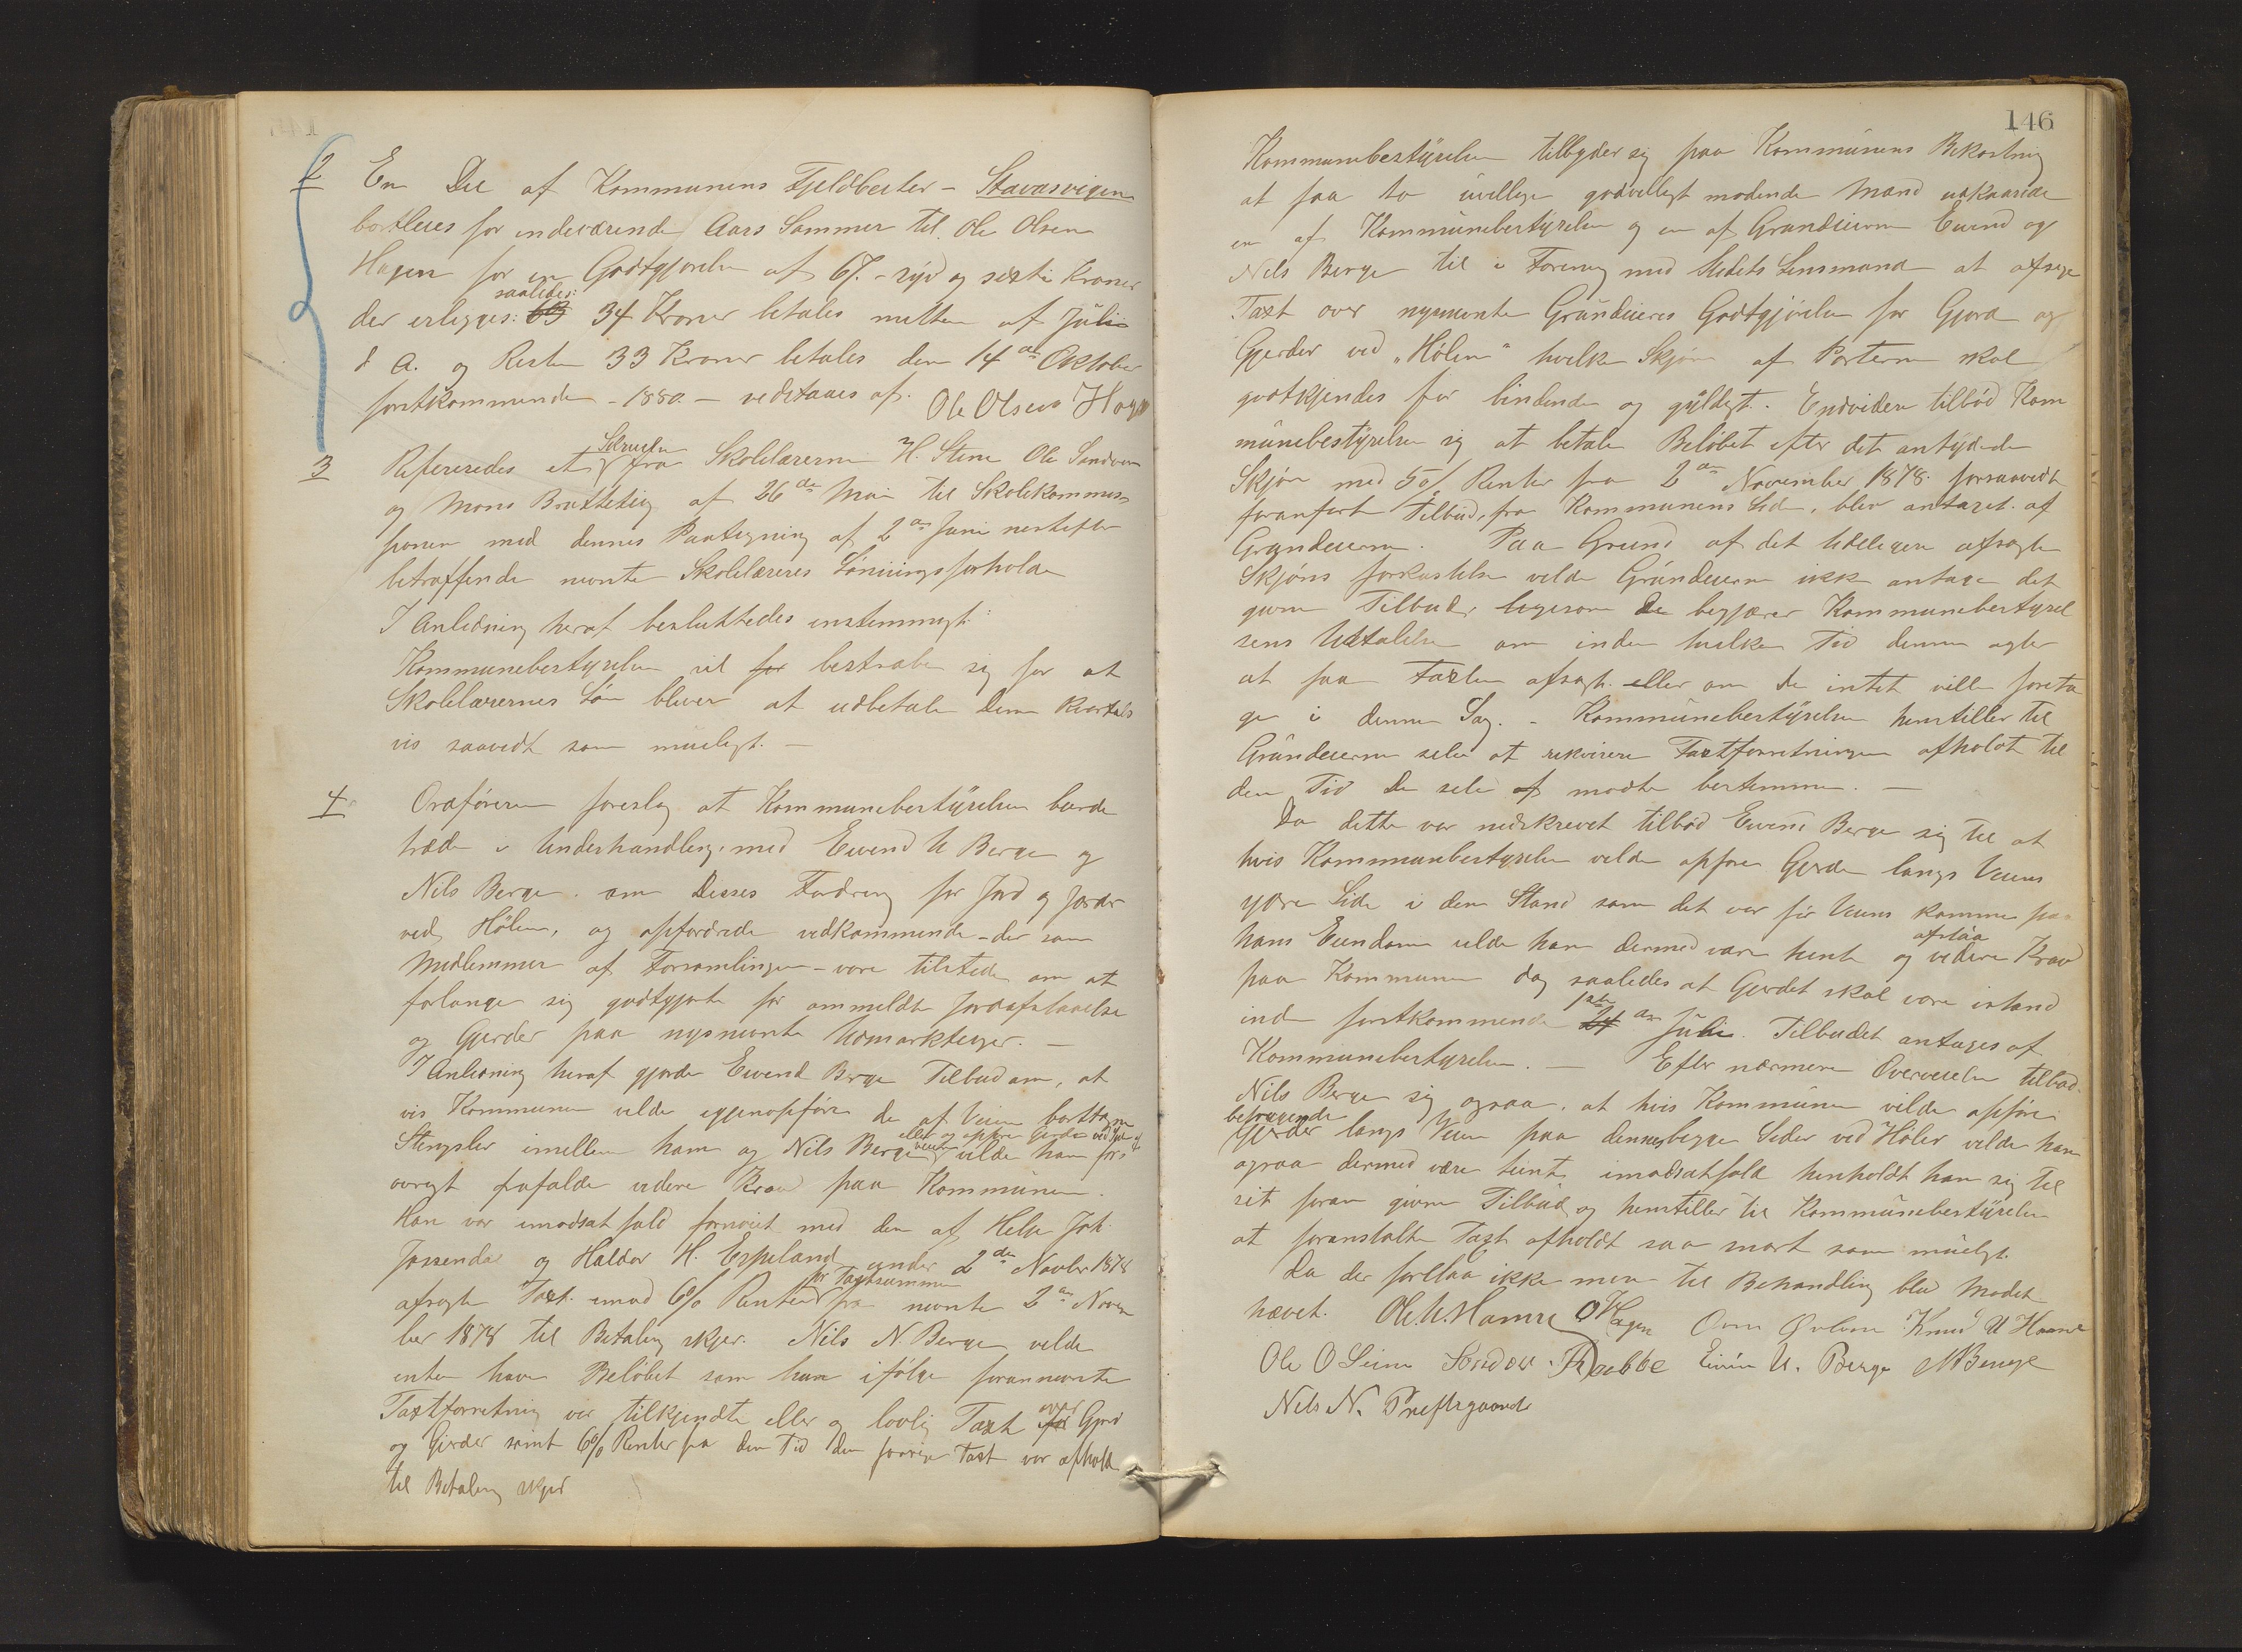 2 En Del af Kommunens Fjeldbeiter - Stavasvigen
bortleies for indeværende Aars Sommer til Ole Olsen
Hagen for en Godtgjørelse af 67. - syv og sexti Kroner
saaledes:
der erlægges: 63 34 Kroner betales midten af Juli
d A. og Resten 33 Kroner betales den 14de Oktober
førstkommende - 1880. - vedstaaes af. Ole Olsen Hagen
3 Refereredes et Skrivelse fra Skolelærerne H. Stene Ole Sandven
og Mons Bratteteig af 26de Mai til Skolekommis-
sionen med dennes Paategning af 2den Juni nestefter
betræffende nevnte Skolelæreres Lønningsforholde
I Anledning heraf besluttedes enstemmigt:
Kommunebestyrelsen vil for bestræbe sig for at
Skolelærernes Løn bliver at udbetale Dem kvartals
vis saavidt som mueligt. -
4 Ordføreren foreslog at Kommunebestyrelsen burde
træde i Underhandling med Eivind U Berge og
Nils Berge. om Disses Fordring for Jord og Gjerder
ved Hølen, og opfordrede vedkommende - der som
Medlemmer af Forsamlingen - vare tilstede om at
forlange sig godtgjorte for ommeldte Jordafstaaelse
og Gjerder paa nysnevnte Udmarkteiger. -
I Anledning heraf gjorde Eivend Berge Tilbud om, at
vis Kommunen vilde igjenopføre de af Veien borttagne
eller og opføre Gjerde ved
Stengsler imellem ham og Nils Berge vilde han for
øvrigt frafalde videre Krav paa Kommunen.
Han var imodsat fald fornøiet med den af Helge Joh.
Jossendal og Haldor H. Espeland under 2den Novbr 1878
for Taxtsummen
afsagte Taxt. imod 6% Renter fra nevnte 2den Novem
ber 1878 til Betaling skjer. Nils N. Berge vilde
enten have Beløbet som ham ifølge forannevnte
Taxtforretning var tilkjendte eller og lovlig Taxt over for Gjord
og Gjerder samt 6% Renter fra den Tid den forrige Taxt var afholdt
til Betaling skjer
146
Kommunebestyrelsen tilbyder sig paa Kommunens Bekostning
at faa to uvillige godvilligt mødende Mænd udkaarede
en af Kommunebestyrelsen og en af Grundeierne Eivind og
Nils Berge til i Forening med Stedets Lensmand at afsige
Taxt over nysnevnte Grundeieres Godtgjørelse for Gjord og
Gjerder ved "Hølen" hvilke Skjøn af Parterne skal
godtkjendes for bindende og gyldigt. Endvidere tilbød Kom
munebestyrelsen sig at betale Beløbet efter det antydede
Skjøn med 5% Renter fra 2den November 1878. forsaavidt
foranførte Tilbud, fra Kommunens Side, blev antaget af
Grundeierne. Paa Grund af det tidligere afsagte
Skjøns forkastelse vilde Grundeierne ikke antage det
givne Tilbud, ligesom De begjærer Kommunebestyrel
sens Udtalelse om inden hvilken Tid denne agter
at faa Taxten afsagt. eller om de intet ville foreta
ge i denne Sag. - Kommunebestyrelsen henstiller til
Grundeierne selv at rekvirere Taxtforretningen afholdt til
den Tid De selv af maatte bestemme. -
Da dette var nedskrevet tilbød Eivend Berge sig til at
hvis Kommunebestyrelsen vilde opføre Gjerde langs Veiens
ydre Side i den Stand som det var før Veiens komme paa
hans Eiendom vilde han dermed være tient og afstaa videre Krav
paa Kommunen dog saaledes at Gjerdet skal være istand
inden førstkommende 24 1ste den Juli. Tilbudet antages af
Kommunebestyrelsen. - Efter nærmere Overveielse tilbød
Nils Berge sig ogsaa, at hvis Kommunen vilde opføre
besagende
Gjerder langs Veien paa dennes begge Sider ved Hølen vilde han
ogsaa dermed være tient, imodsatfald henholdt han sig til
sit foran givne Tilbud og henstiller til Kommunebestyrelsen
at foranstalte Taxt afholdt saa snart som mueligt.
Da der forelaa ikke mere til Behandling blev Mødet
hævet. Ole U. Hamre O Hagen Knud U Haave
Ole O Seim Sjur Eivin U. Berge N Berge
Nils N. Prestegaard